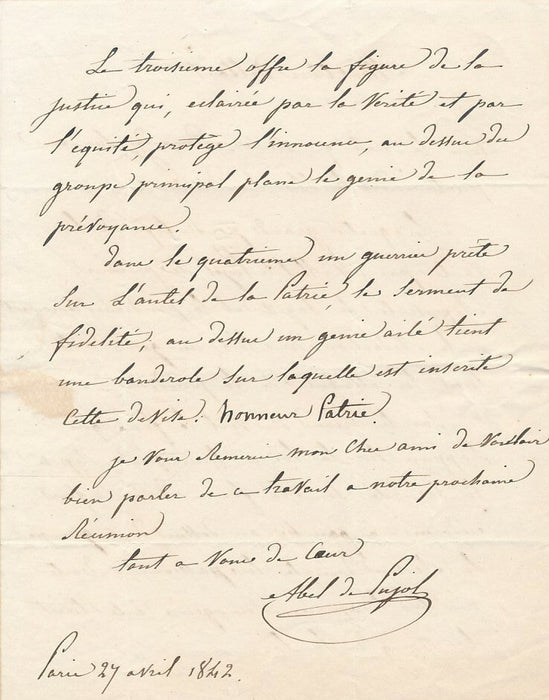 Le troisieme offre la figure de la
justice qui, eclairée par la Verité et par
l'equité, protège l'innocence, au dessus du
groupe principal plane le genie de la
prévoyance.
dans le quatrieme un guerrier prête
sur L'autel de la Patrie, le serment de
fidelité, au dessus un genie ailé tient
une banderole sur laquelle est inscrite
cette devise: honneur Patrie.
je vous remercie mon cher ami de vouloir
bien parler de ce travail a notre prochaine
Réunion
tout a vous de Cœur
Abel de Pujol
Paris 27 avril 1842.